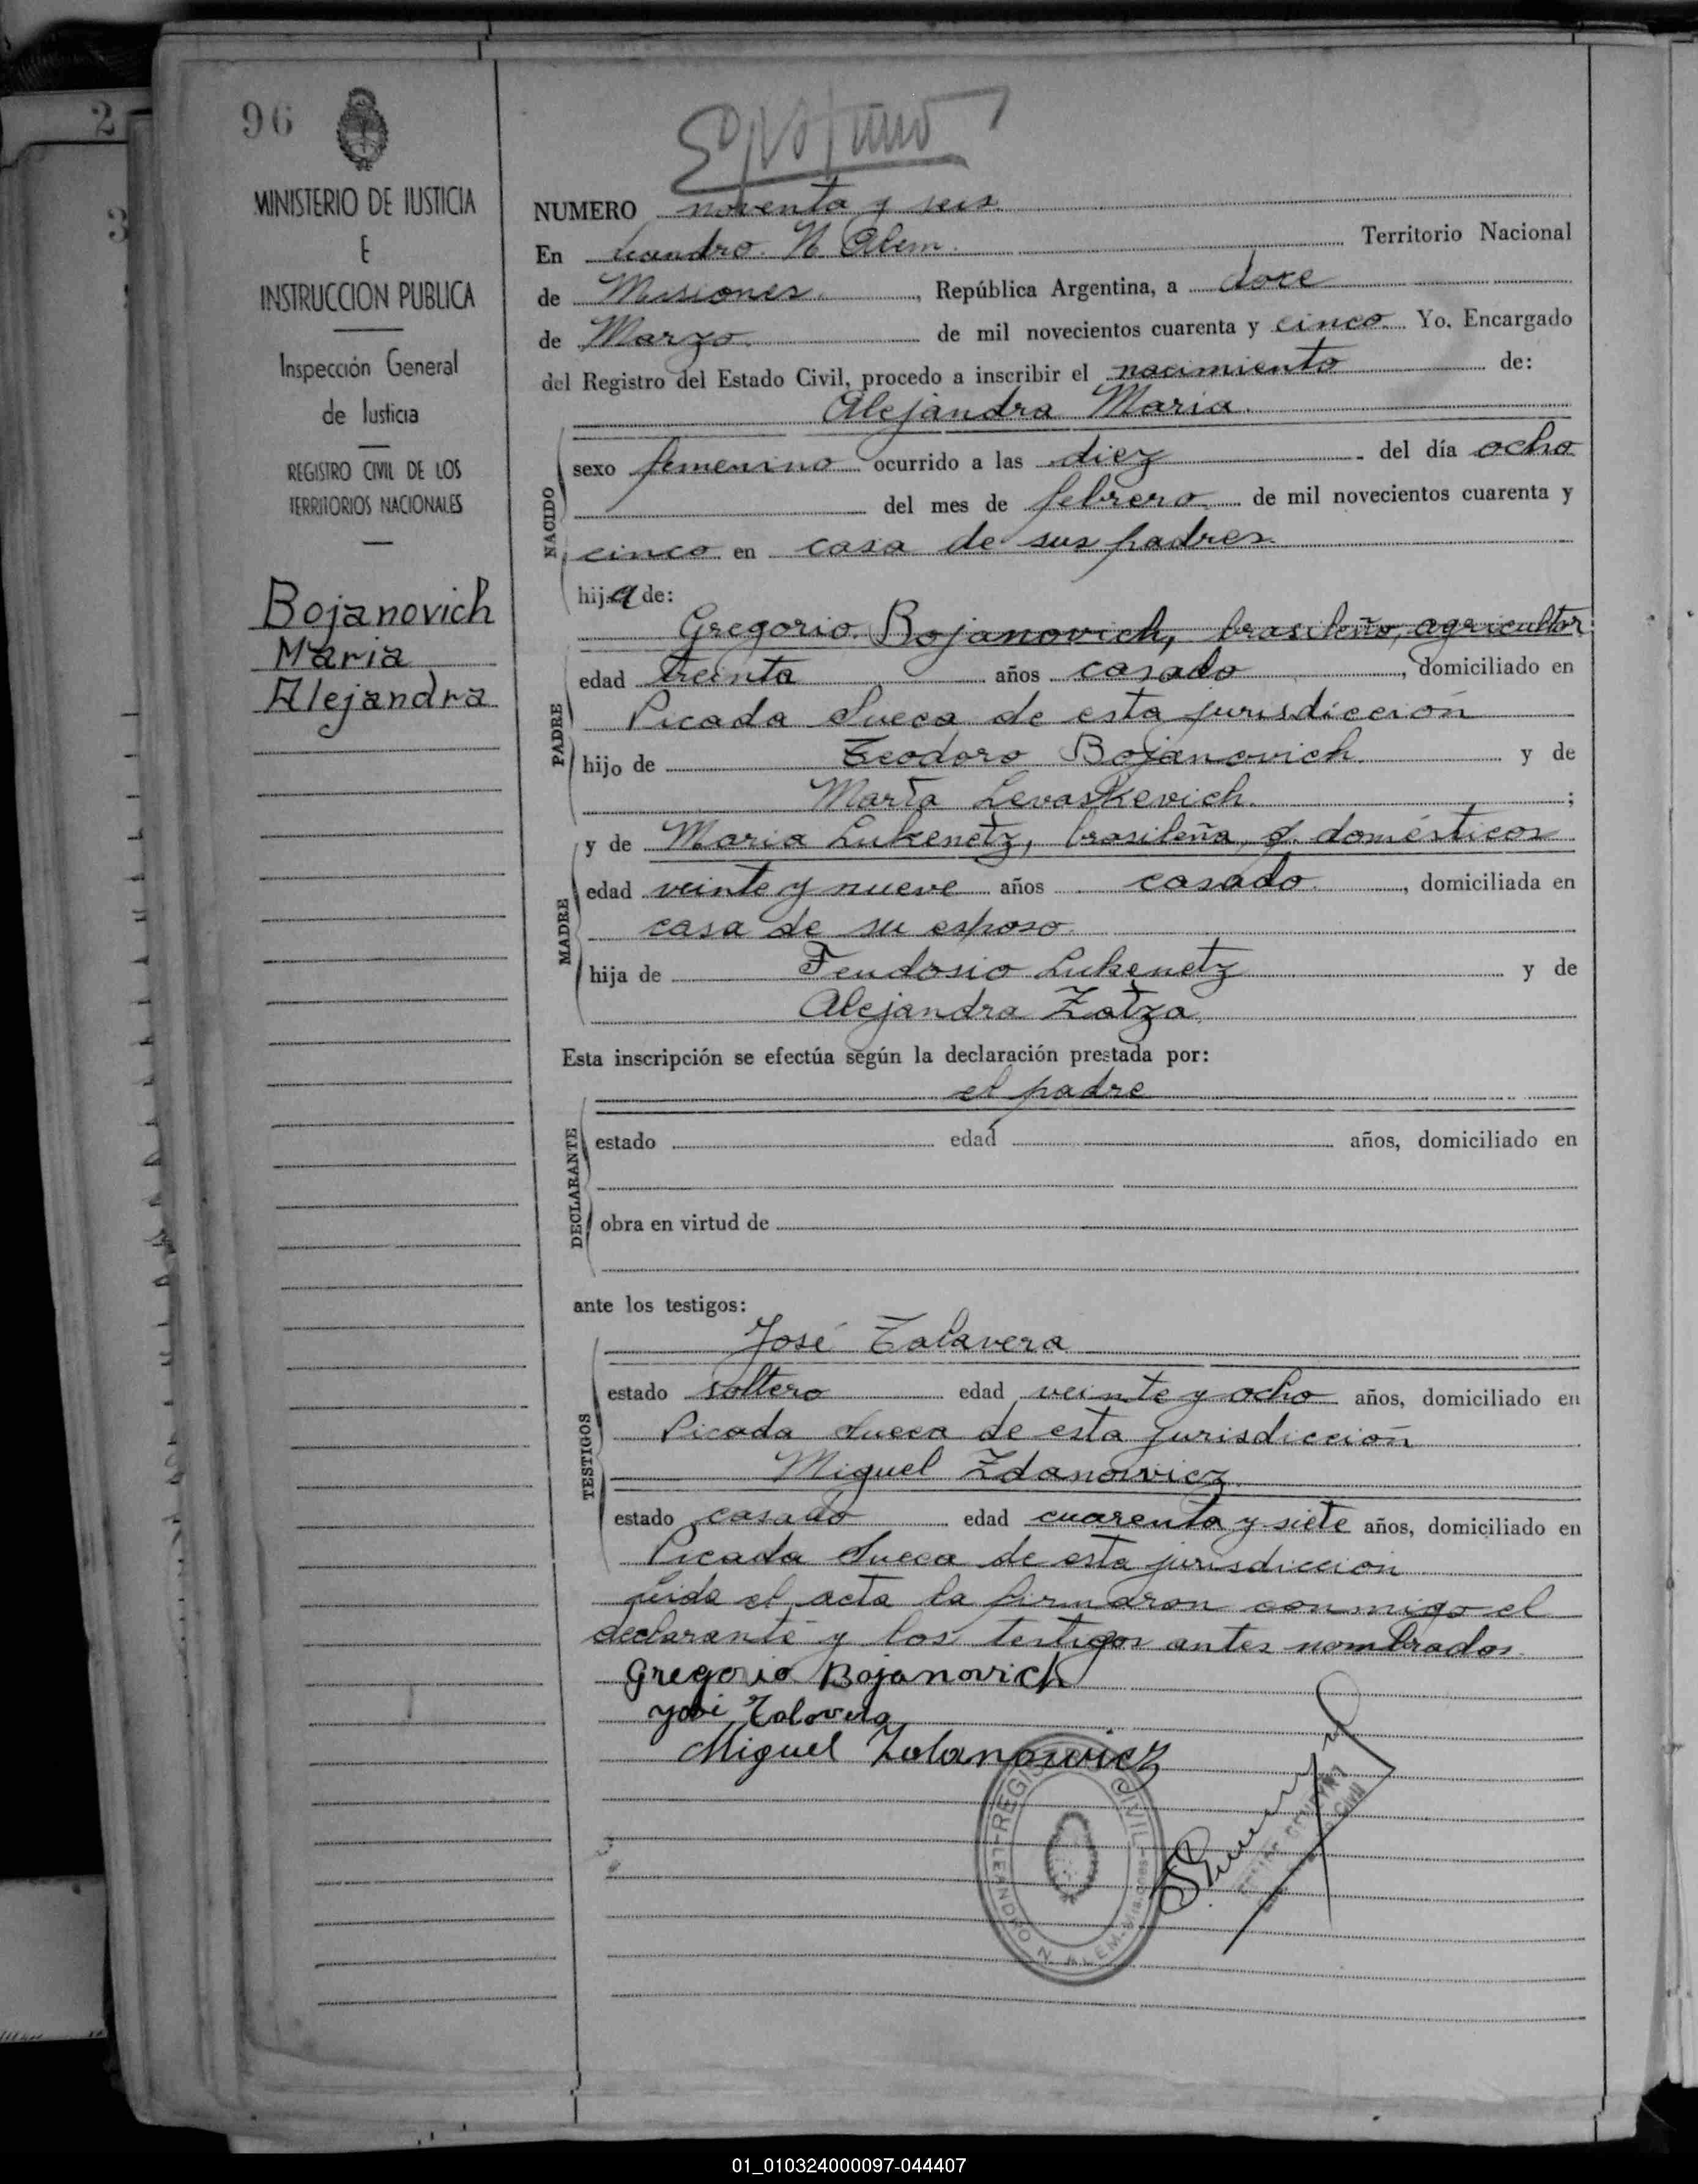 96
2
3
MINISTERIO DE JUSTICIA
E
INSTRUCCION PUBLICA
Inspección General
de Justicia
REGISTRO CIVIL DE LOS
TERRITORIOS NACIONALES
Bojanovich
Maria
Alejandra
NUMERO noventa y seis
En Leandro. N. Alem. Territorio Nacional
de Misiones, República Argentina, a doce
de Marzo. de mil novecientos cuarenta y cinco. Yo, Encargado
del Registro del Estado Civil, procedo a inscribir el nacimiento de:
Alejandra Maria.
NACIDO
sexo femenino ocurrido a las diez del día ocho
del mes de febrero. de mil novecientos cuarenta y
cinco en casa de sus padres.
hija de:
PADRE
Gregorio Bojanovich, brasileño, agricultor
edad treinta años casado, domiciliado en
Picada Sueca de esta jurisdicción
hijo de Teodoro Bojanovich. y de
Marta Levaskevich. ;
MADRE
y de Maria Lukenetz, brasileña, q. domésticos
edad veinte y nueve años casado, domiciliada en
casa de su esposo.
hija de Feudosio Lukenetz y de
Alejandra Zatza.
Esta inscripción se efectúa según la declaración prestada por:
el padre
DECLARANTE
estado edad años, domiciliado en
obra en virtud de
ante los testigos:
TESTIGOS
José Talavera
estado soltero edad veinte y ocho años, domiciliado en
Picada Sueca de esta jurisdicción
Miguel Zdanowicz
estado casado edad cuarenta y siete años, domiciliado en
Picada Sueca de esta jurisdicción
Leida el acta la firmaron conmigo el
declarante y los testigos antes nombrados.
Gregorio Bojanovich
José Talavera
Miguel Zdanowicz
REGISTRO CIVIL
LEANDRO N. ALEM - Misiones
01_010324000097-044407